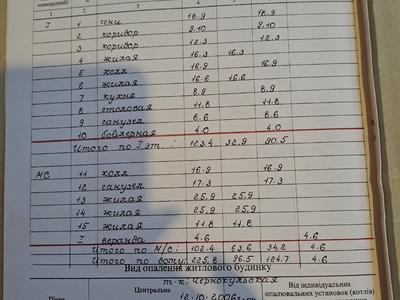 мансардний)
1 2 3 4 5 6
I 1 сени 18.9 18.9
2 коридор 9.10 9.10
3 коридор 12.3 12.3
4 жилая 16.3 16.3
5 холл 16.9 16.9
6 жилая 16.6 16.6
7 кухня 8.9 8.9
8 столовая 11.8 11.8
9 санузел 8.6 8.6
10 бойлерная 4.0 4.0
Итого по I эт.: 123.4 32.9 90.5
МС 11 холл 16.9 16.9
12 санузел 17.3 17.3
13 жилая 25.9 25.9
14 жилая 25.9 25.9
15 жилая 11.8 11.8
I веранда 4.6 4.6
Итого по М/с: 102.4 63.6 34.2 4.6
Итого по : 225.8 96.5 124.7 4.6
Вид опалення житлового будинку
Центральне
12.10.2006
Від індивідуальних
опалювальних установок (котлів)